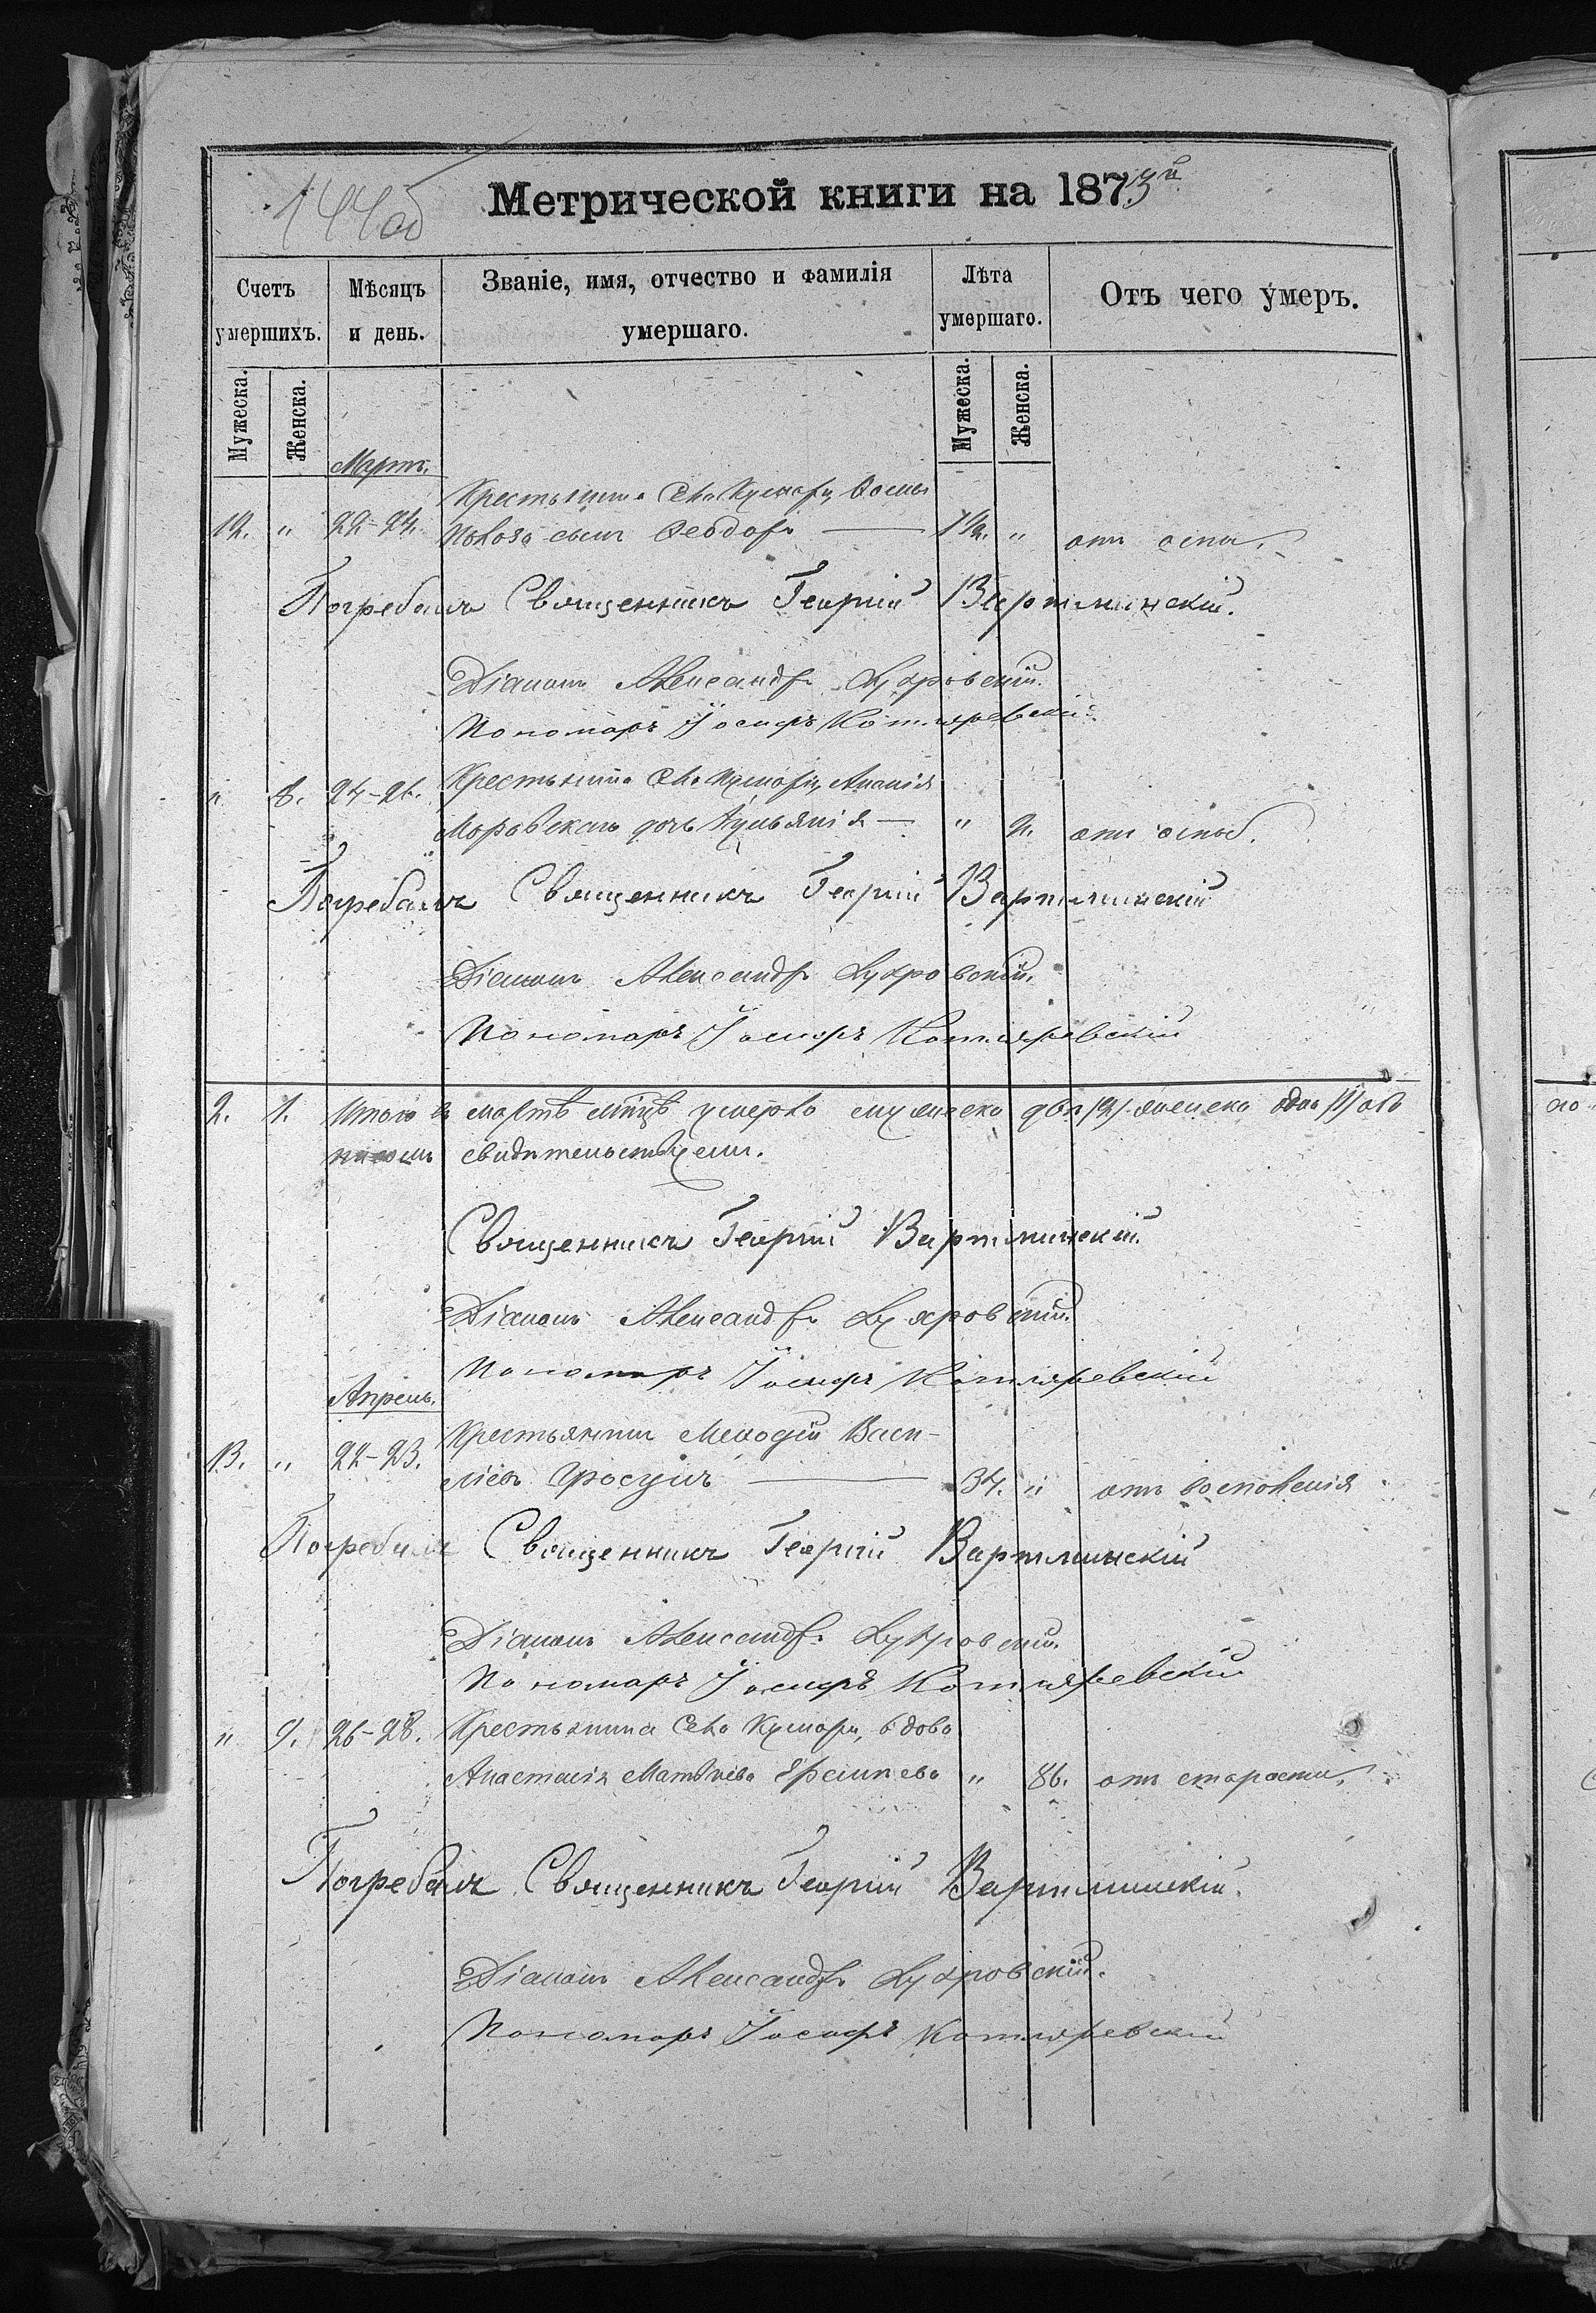 144об
Метрической книги на 1873й
Счетъ умершихъ.
Мѣсяцъ и день.
Званіе, имя, отчество и фамилія умершаго.
Лѣта умершаго.
Отъ чего умеръ.
Мужеска.
Женска.
Мужеска.
Женска.
Мартъ.
Крестьянина Села Кумары, Ѳомы
12. " 22-24. сынъ Ѳеодоръ — 1½. " отъ оспы.
Погребалъ Священникъ Георгій Вартминскій.
Діаконъ Александръ
Пономарь Іосифъ Котляревскій.
Крестьянина Села Кумары, Ананія
" 8. 24-26. дочь — " 2. отъ оспы.
Погребалъ Священникъ Георгій Вартминскій
Діаконъ Александръ
Пономарь Іосифъ Котляревскій
2. 1. Итого въ мартѣ мѣсяцѣ умерло мужеска два /2/ женска одна /1/ объ
свидѣтельствуемъ.
Священникъ Георгій Вартминскій.
Діаконъ Александръ
Пономарь Іосифъ Котляревскій
Апрель.
Крестьянинъ Меѳодій Васи-
13. " 22-23. ліевъ — 34. " отъ воспаленія
Погребалъ Священникъ Георгій Вартминскій
Діаконъ Александръ
Пономарь Іосифъ Котляревскій
" 9. 26-28. Крестьянина Села Кумары, вдова
Анастасія Матвѣева " 86. отъ старости.
Погребалъ Священникъ Георгій Вартминскій.
Діаконъ Александръ
Пономарь Іосифъ Котляревскій